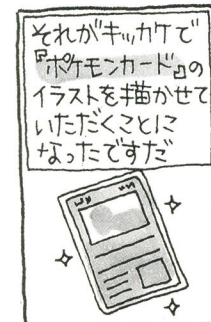 それがキッカケで
『ポケモンカード』の
イラストを描かせて
いただくことに
なったですだ